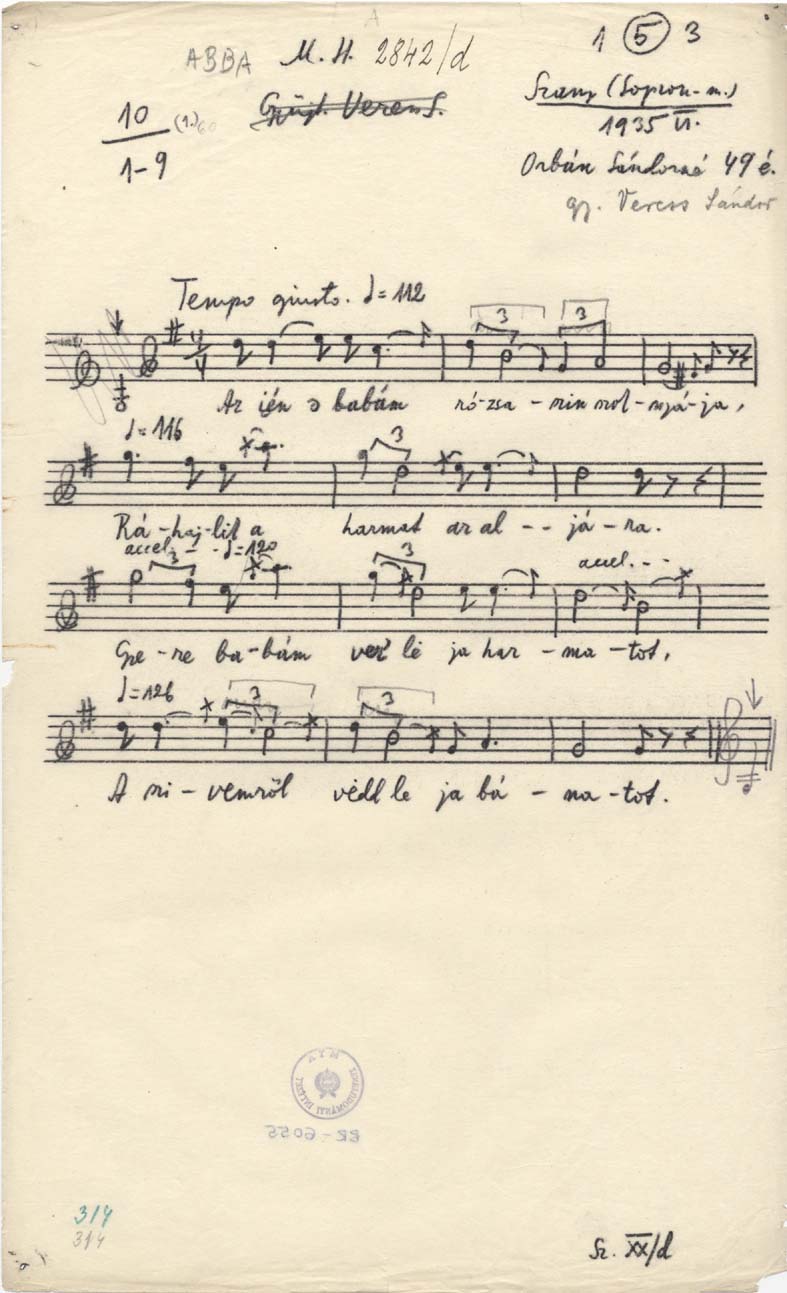 1 5 3
ABBA M. H. 2842/d
Gyüjt. Veress S.
Szany (Sopron-m.)
1935 VI.
10 (1.)
1-9
Orbán Sándorné 49 é.
gy. Veress Sándor
Tempo giusto. = 112
3 3
Az ién a babám ró-zsa-szin szol-nyá-ja,
= 116
3
Rá-haj-lit a harmat az al -- já-ra.
accel. - - = 120
3 3 accel. - - -
Gye-re ba-bám ver lé ja har-ma-tot,
= 126
3 3
A szi-vemröl védd le ja bá-na-tot.
314
314
Sz. XX/d